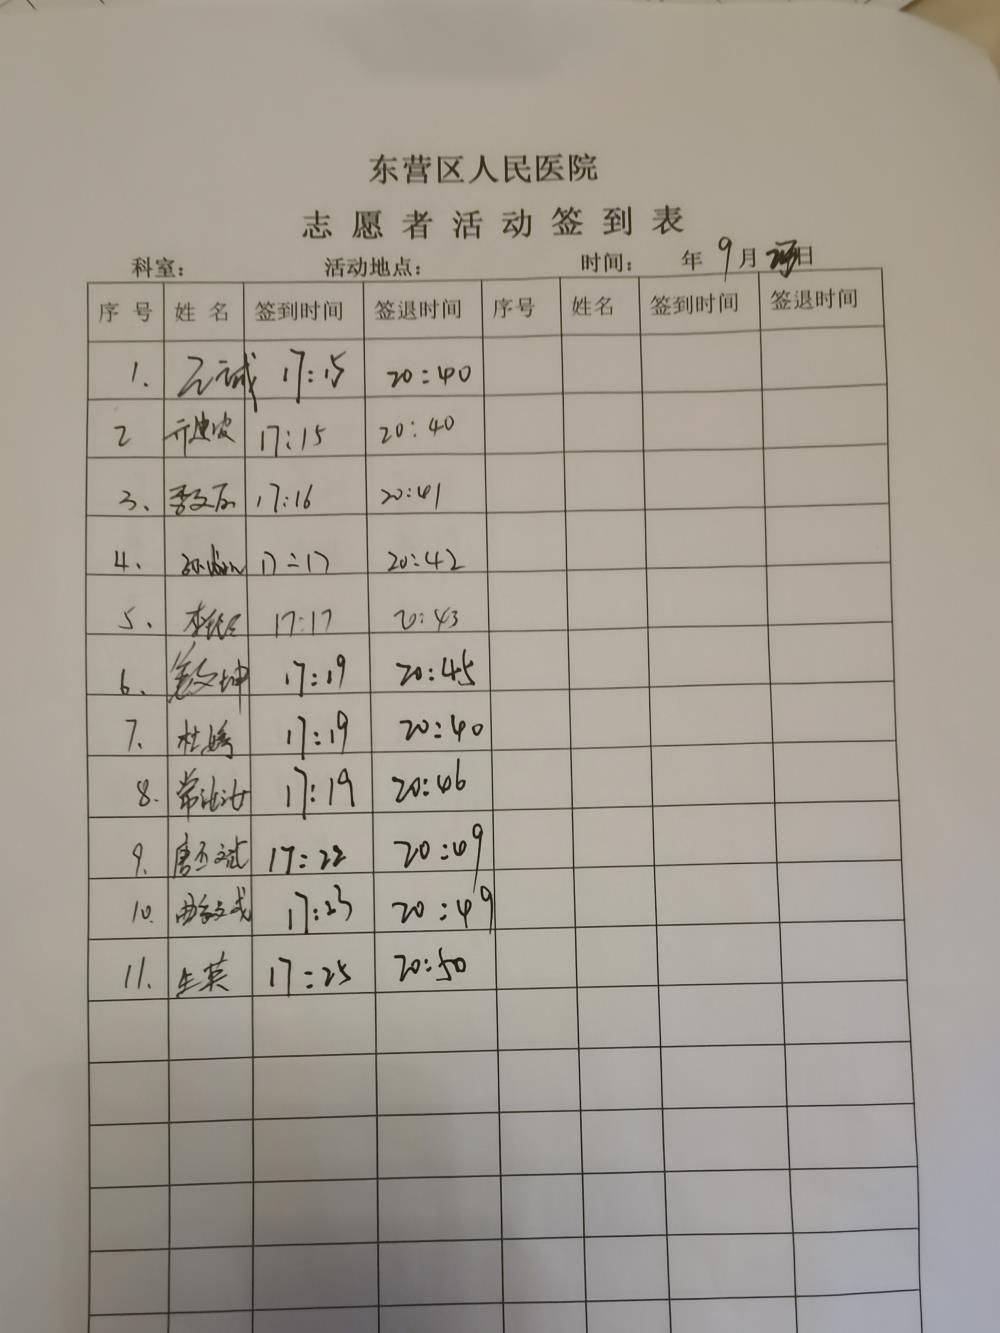 东营区人民医院
志愿者活动签到表
科室： 活动地点： 时间： 年 9月 日
序号 姓名 签到时间 签退时间 序号 姓名 签到时间 签退时间
1. 17:15 20:40
2 17:15 20:40
3. 17:16 20:41
4. 17:17 20:42
5. 17:17 20:43
6. 17:19 20:45
7. 杜娇 17:19 20:40
8. 17:19 20:46
9. 唐丕斌 17:22 20:49
10. 17:23 20:49
11. 生英 17:25 20:50